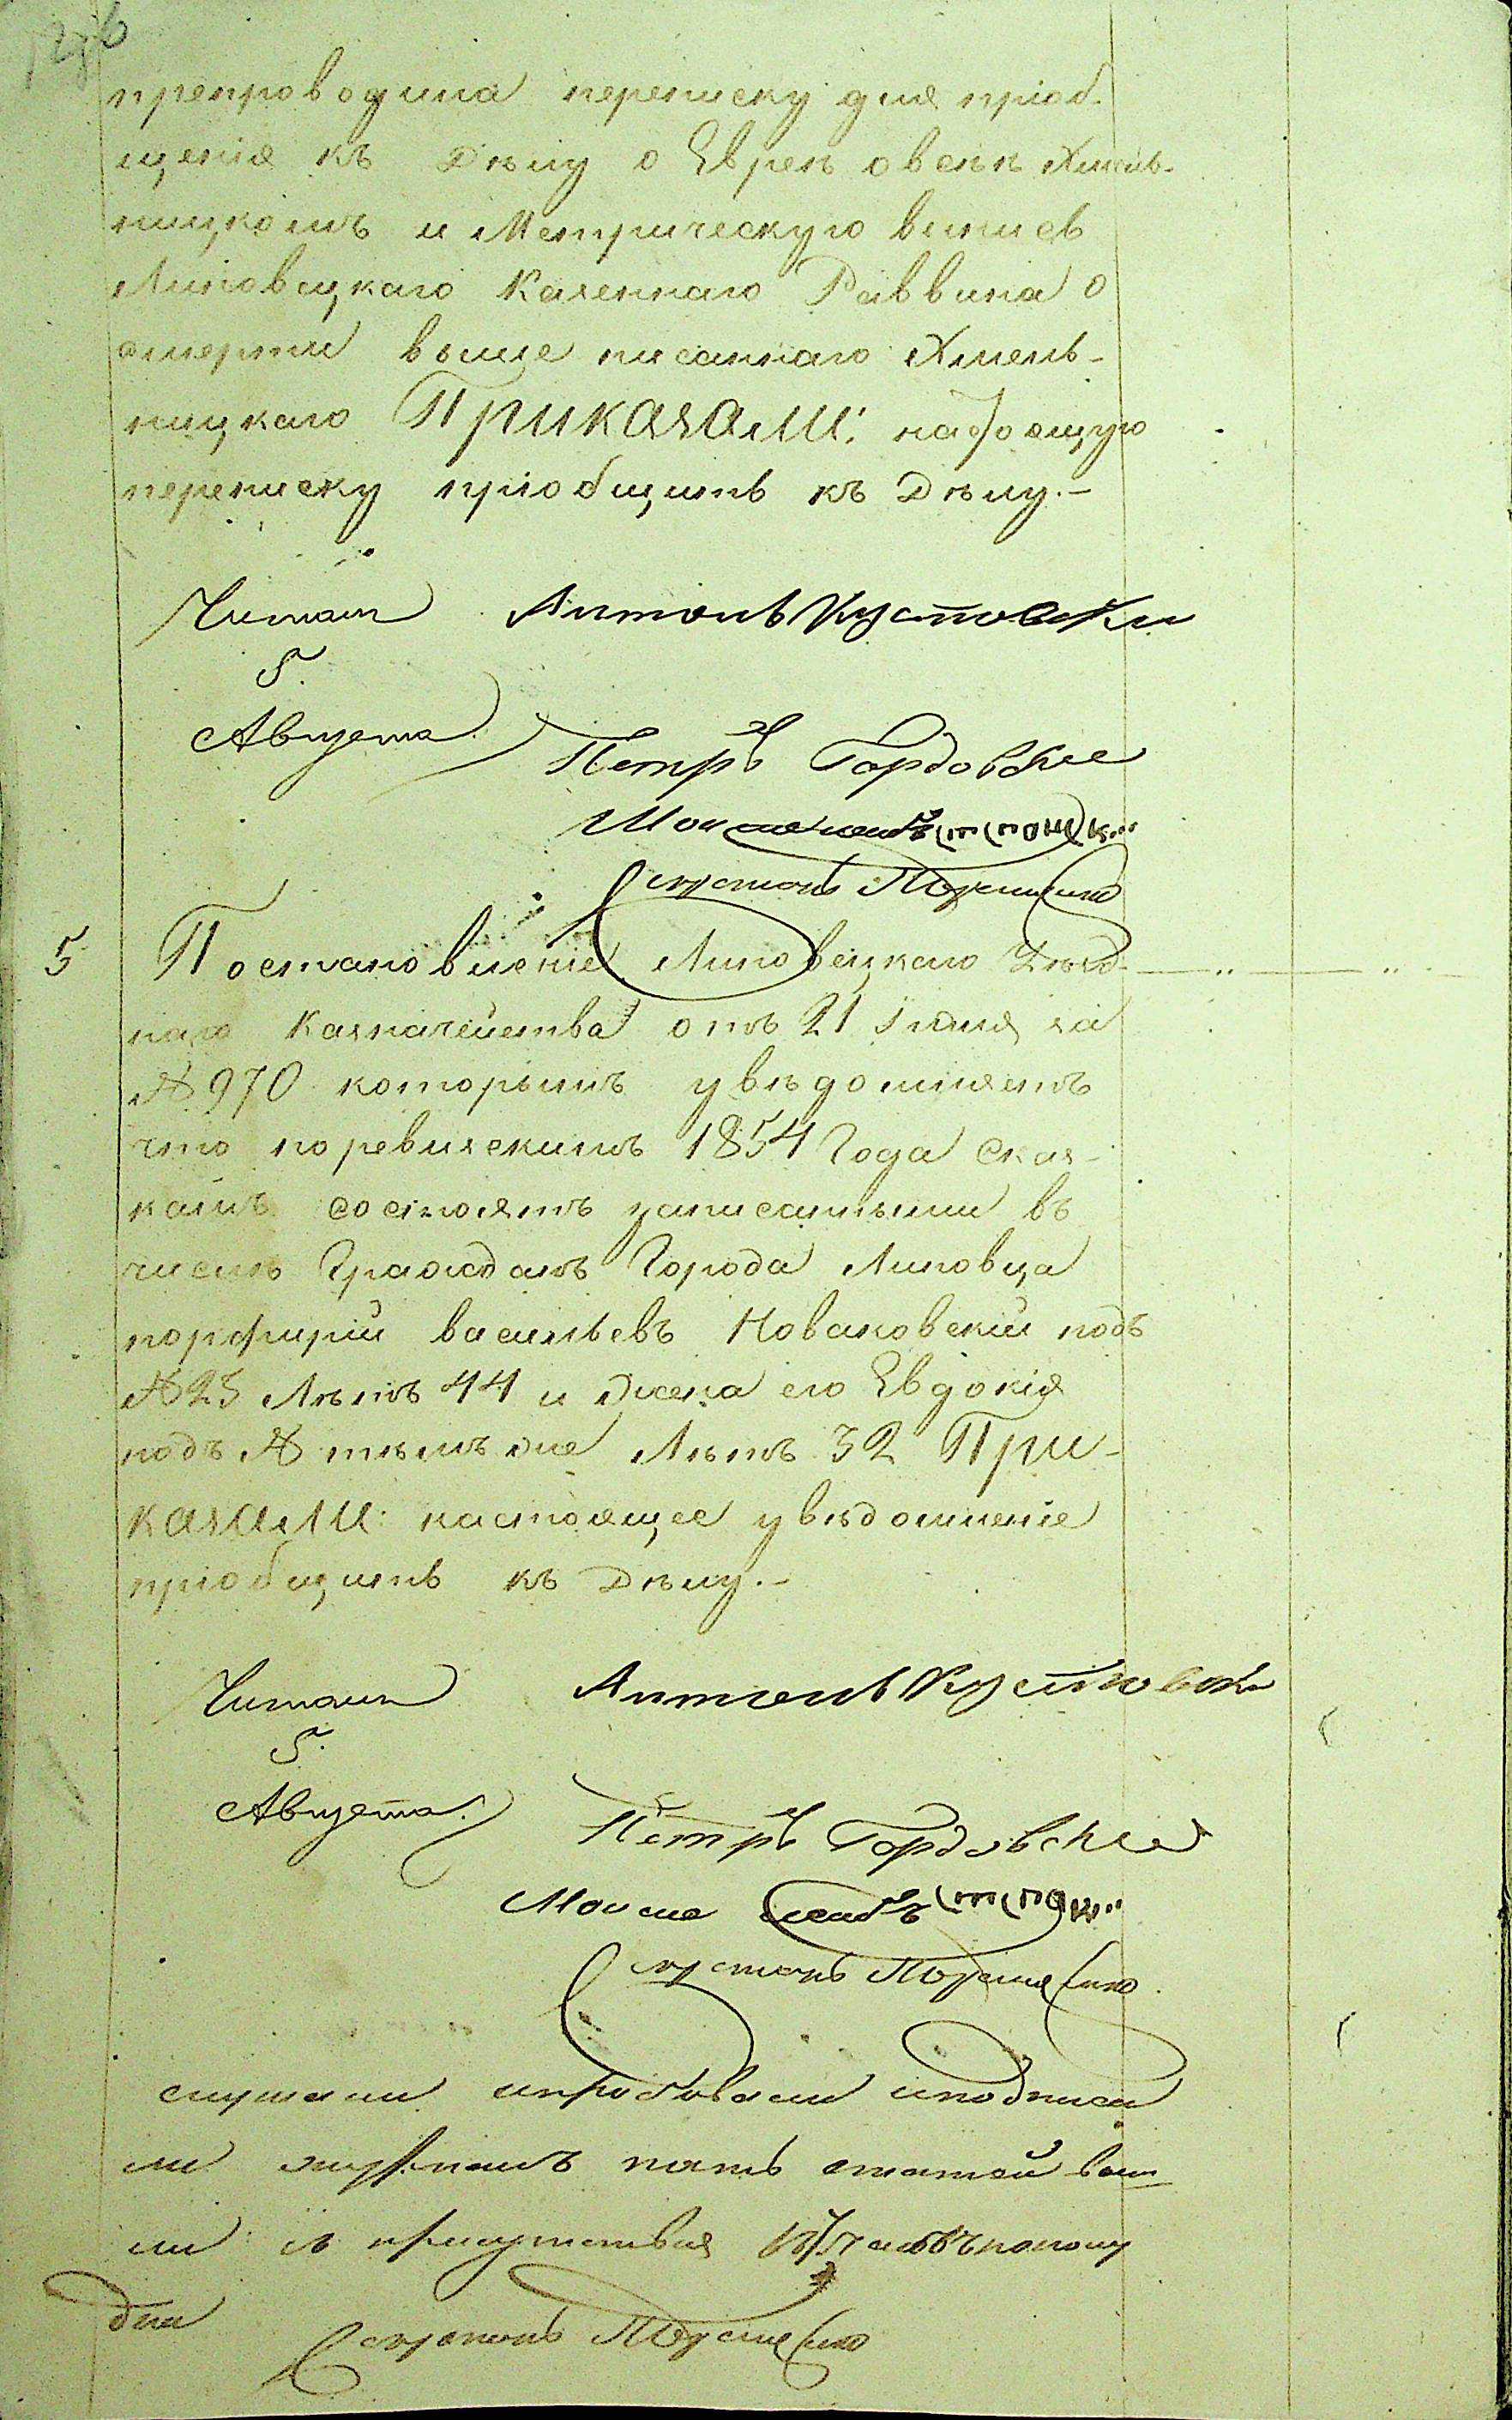 препроводила переписку для пріоб-
щенія къ Дѣлу о Евреѣ овсѣѣ Хмель-
ницкомъ и Метрическую выпись
Липовецкаго Казеннаго Раввина о
смерти выше писаннаго Хмель-
ницкаго Приказали:
переписку пріобщить къ Дѣлу.-
Читали Антонъ Кустовски
5.
Августа
Петръ Гордовскіе
5 Постановленіе Липовецкаго Уѣзд-
наго Казначейства отъ 21 Іюля за
№ 970 которымъ увѣдомляетъ
что поревизскимъ 1854 Года Сказ-
камъ состоятъ записанными въ
числѣ Гражданъ Города Липовца
порфирій васильевъ Новаковскій подъ
№ 25 Лѣтъ 44 и Жена его Евдокія
подъ № тѣмъ же Лѣтъ 32 При-
казали: настоящее увѣдомленіе
пріобщить къ Дѣлу.-
Читали Антонъ Кустовски
5.
Августа.
Петръ Гордовскіе
Мошко
слушали иподписа
ли пять статей вы
ли съ присутствія пополу
дни